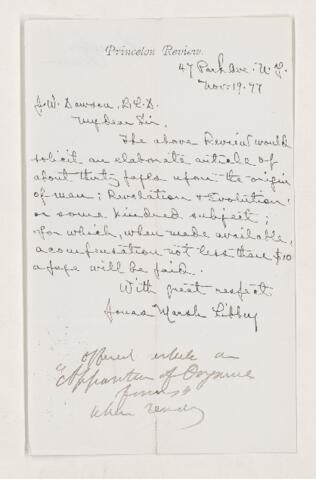 Princeton Review.
47 Park Ave. N.Y.
Nov. 19. 77
J. W. Dawson, L.L.D.
My dear Sir,
The above Review would
solicit an elaborate article of
about thirty pages upon the origin
of man; Revelation & Evolution;
or some kindred subject;
for which, when made available,
a compensation not less than $10
a page will be paid.
With great respect
Jonas Marsh Libbey
offered article on
"Apparition of Organic
forms"
when ready